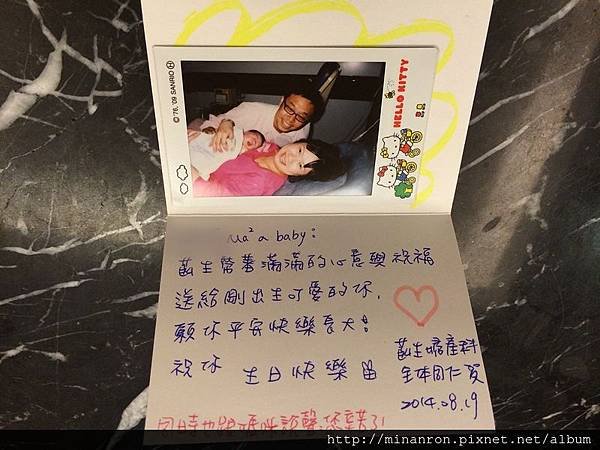 © '76, '09 SANRIO
HELLO KITTY
Ma² a baby:
茲生營養滿滿的心意與祝福
送給剛出生可愛的你,
願你平安快樂長大!
祝你 生日快樂
茲生婦產科
全体同仁賀
2014.08.19
同時也跟媽咪說聲:您辛苦了!
http://minanron.pixnet.net/album